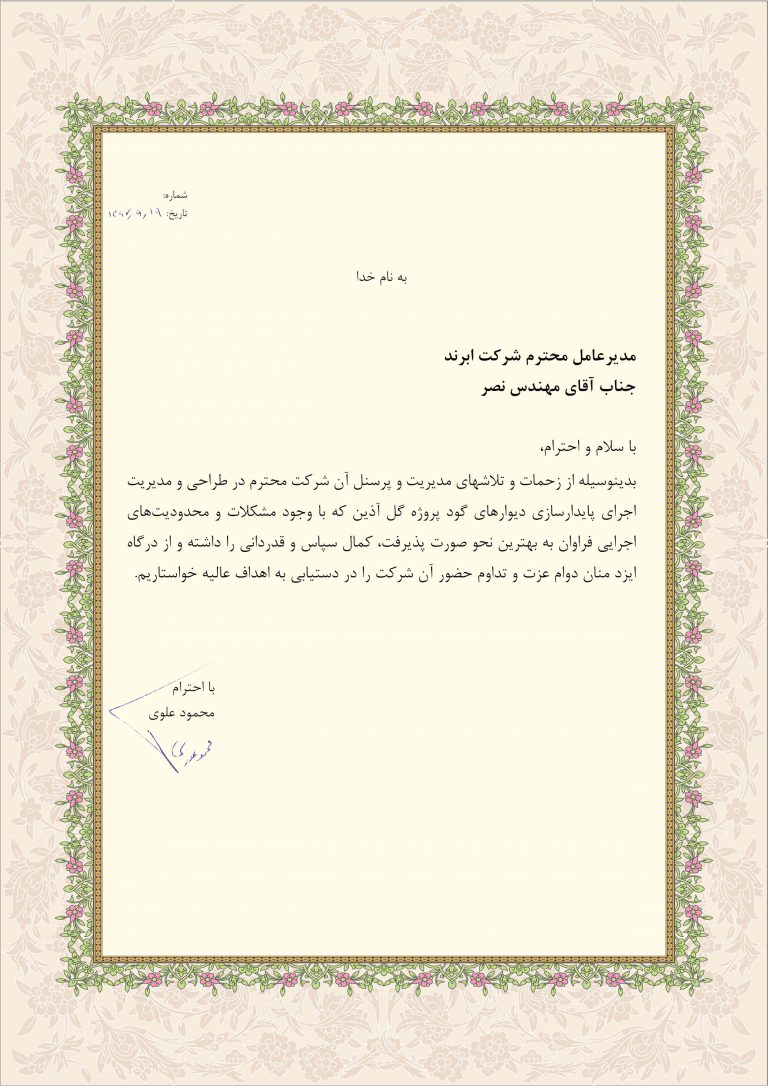 شماره:
تاریخ:
به نام خدا
مدیرعامل محترم شرکت ابرند
جناب آقای مهندس نصر
با سلام و احترام،
بدینوسیله از زحمات و تلاشهای مدیریت و پرسنل آن شرکت محترم در طراحی و مدیریت
اجرای پایدارسازی دیوارهای گود پروژه گل آذین که با وجود مشکلات و محدودیت‌های
اجرایی فراوان به بهترین نحو صورت پذیرفت، کمال سپاس و قدردانی را داشته و از درگاه
ایزد منان دوام عزت و تداوم حضور آن شرکت را در دستیابی به اهداف عالیه خواستاریم.
با احترام
محمود علوی